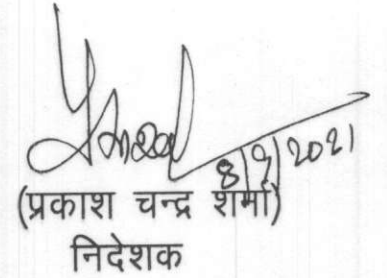 8/9/2021
(प्रकाश चन्द्र शर्मा)
निदेशक